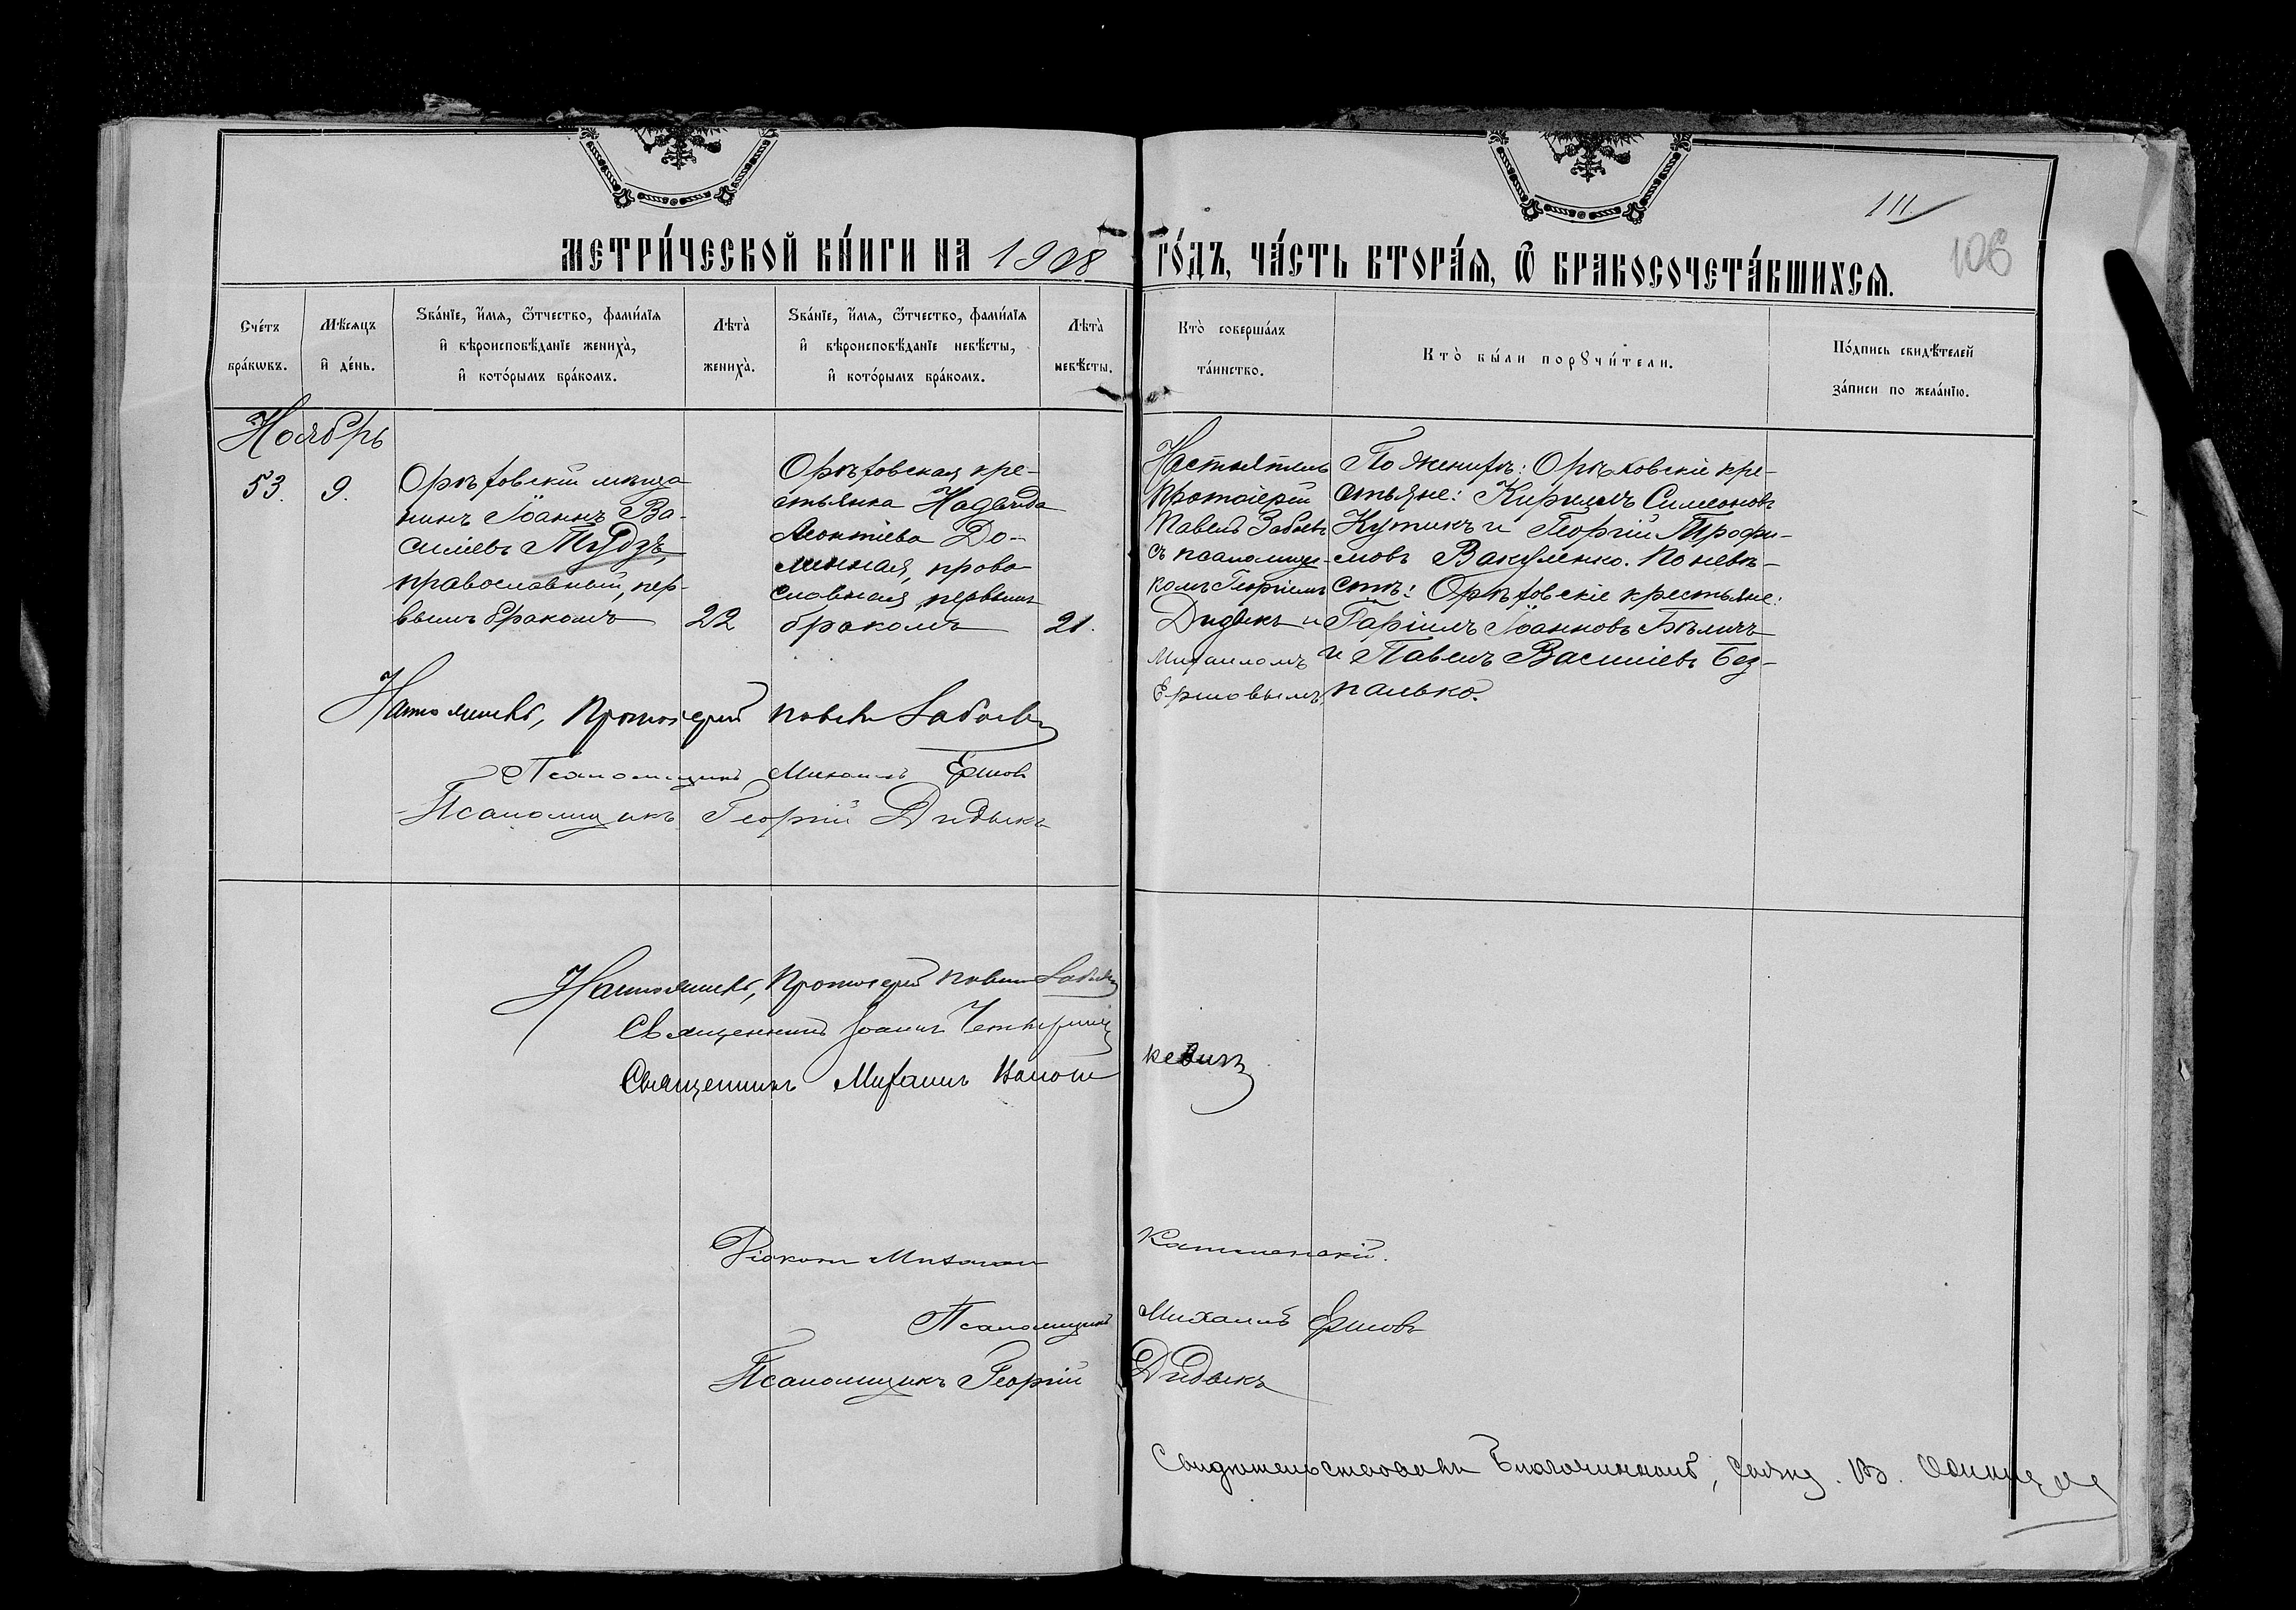 111
106
МЕТРИ́ЧЕСКОЙ КНИ́ГИ НА 1908 ГО́ДЪ, ЧА́СТЬ ВТОРА́Ѧ, Ѡ БРАКОСОЧЕТА́ВШИХСѦ.
Сче́тъ бра́кѡвъ.
Мѣ́сѧцъ и҆ де́нь.
Ѕва́нїе, и҆́мѧ, ѻ҆́тчество, фами́лїѧ
и҆ вѣроисповѣ́данїе жениха̀,
и҆ кото́рымъ бра́комъ.
Лѣта̀ жениха̀.
Ѕва́нїе, и҆́мѧ, ѻ҆́тчество, фами́лїѧ
и҆ вѣроисповѣ́данїе невѣ́сты,
и҆ кото́рымъ бра́комъ.
Лѣта̀ невѣ́сты.
Кто̀ соверша́лъ
та́инство.
Кто̀ бы́ли порꙋчи́тели.
По́дпись свидѣ́телей
за́писи по жела́нїю.
Ноябрь
53.
9.
Орѣховскій мѣща
нинъ Іоаннъ Ва-
силіевъ Мудзъ,
православный, пер-
вымъ бракомъ
22
Орѣховская кре-
стьянка Надежда
Леонтіева До-
линная, право
славная, первымъ
бракомъ
21.
Настоятель
Протоіерей
Павелъ Забоевъ
съ псаломщи-
комъ Георгіемъ
Дидыкъ и
Михаиломъ
Ершовымъ.
По женихѣ: Орѣховскіе кре-
стьяне: Кириллъ Симеоновъ
Кутикъ и Георгій Трофи-
мовъ Вакуленко. По невѣ-
стѣ: Орѣховскіе крестьяне:
Іоанновъ Бѣличъ
и Павелъ Василіевъ Без-
палько.
Настоятель, Протоіерей Павелъ Забоевъ
Псаломщикъ Михаилъ Ершовъ
Псаломщикъ Георгій Дидыкъ
Настоятель, Протоіерей Павелъ Забоевъ
Священникъ Іоаннъ
Священникъ Михаилъ кевичъ
Діаконъ Михаилъ
Псаломщикъ Михаилъ Ершовъ
Псаломщикъ Георгій Дидыкъ
Благочинный, Свящ. В.